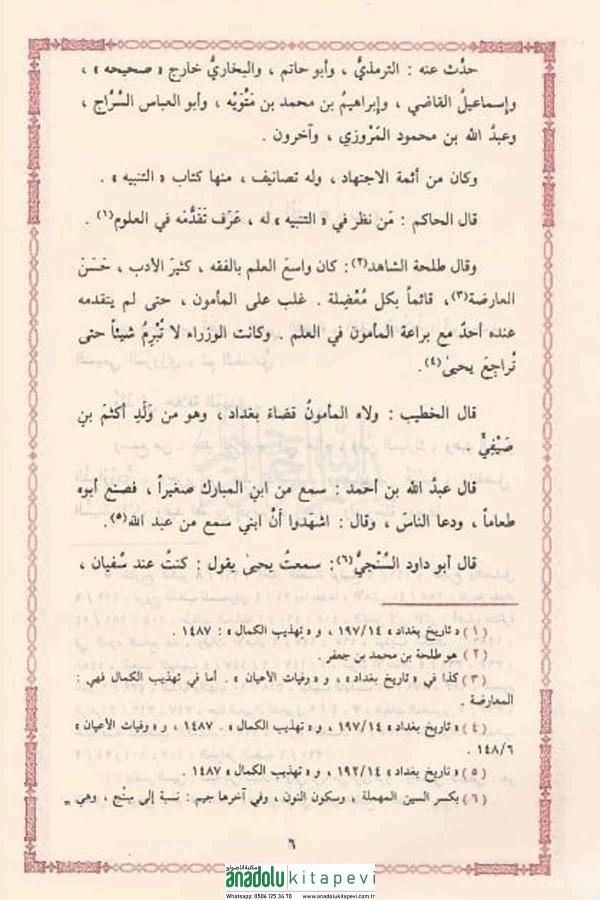 حدَّث عنه : الترمذيُّ ، وأبو حاتم ، والبخاريُّ خارج « صحيحه » ،
وإسماعيلُ القاضي ، وإبراهيمُ بن محمد بن مَتُّوَيْه ، وأبو العباس السَّرَّاج ،
وعبدُ الله بن محمود المَرْوزي ، وآخرون .
وكان من أئمة الاجتهاد ، وله تصانيف ، منها كتاب « التنبيه » .
قال الحاكم : مَن نظر في « التنبيه » له ، عَرَف تَقَدُّمَه في العلوم(١) .
وقال طلحة الشاهد(٢): كان واسعَ العلم بالفقه ، كثيرَ الأدب ، حَسَنَ
العارضة(٣)، قائماً بكل مُعْضِلة . غلب على المأمون ، حتى لم يتقدمه
عنده أحدٌ مع براعة المأمون في العلم . وكانت الوزراء لا تُبْرِمُ شيئاً حتى
تُراجِعَ يحيىٰ(٤).
قال الخطيب : ولاه المأمونُ قضاءَ بغداد ، وهو من وَلَدِ أكثمَ بنِ
صَيْفِيٍّ .
قال عبدُ الله بن أحمد : سمع من ابنِ المبارك صغيراً ، فصنع أبوه
طعاماً ، ودعا الناسَ ، وقال : اشهَدوا أَنَّ ابني سمع من عبد الله(٥).
قال أبو داود السِّنْجيُّ(٦): سمعتُ يحيىٰ يقول : كنتُ عند سُفيان ،
(١) « تاريخ بغداد » ١٩٧/١٤ ، و « تهذيب الكمال » : ١٤٨٧ .
(٢) هو طلحة بن محمد بن جعفر .
(٣) كذا في « تاريخ بغداد » ، و « وفيات الأعيان » . أما في تهذيب الكمال فهي :
المعارضة .
(٤) « تاريخ بغداد » ١٩٧/١٤ ، و « تهذيب الكمال » . ١٤٨٧ ، و « وفيات الأعيان »
١٤٨/٦ .
(٥) « تاريخ بغداد » ١٩٢/١٤ ، و « تهذيب الكمال » ١٤٨٧ .
(٦) بكسر السين المهملة ، وسكون النون ، وفي آخرها جيم : نسبة إلى سِنْج ، وهي =
٦
مكتبة الأناضولو
anadolu kitapevi
Whatsapp: 0506 125 34 70 www.anadolukitapevi.com.tr